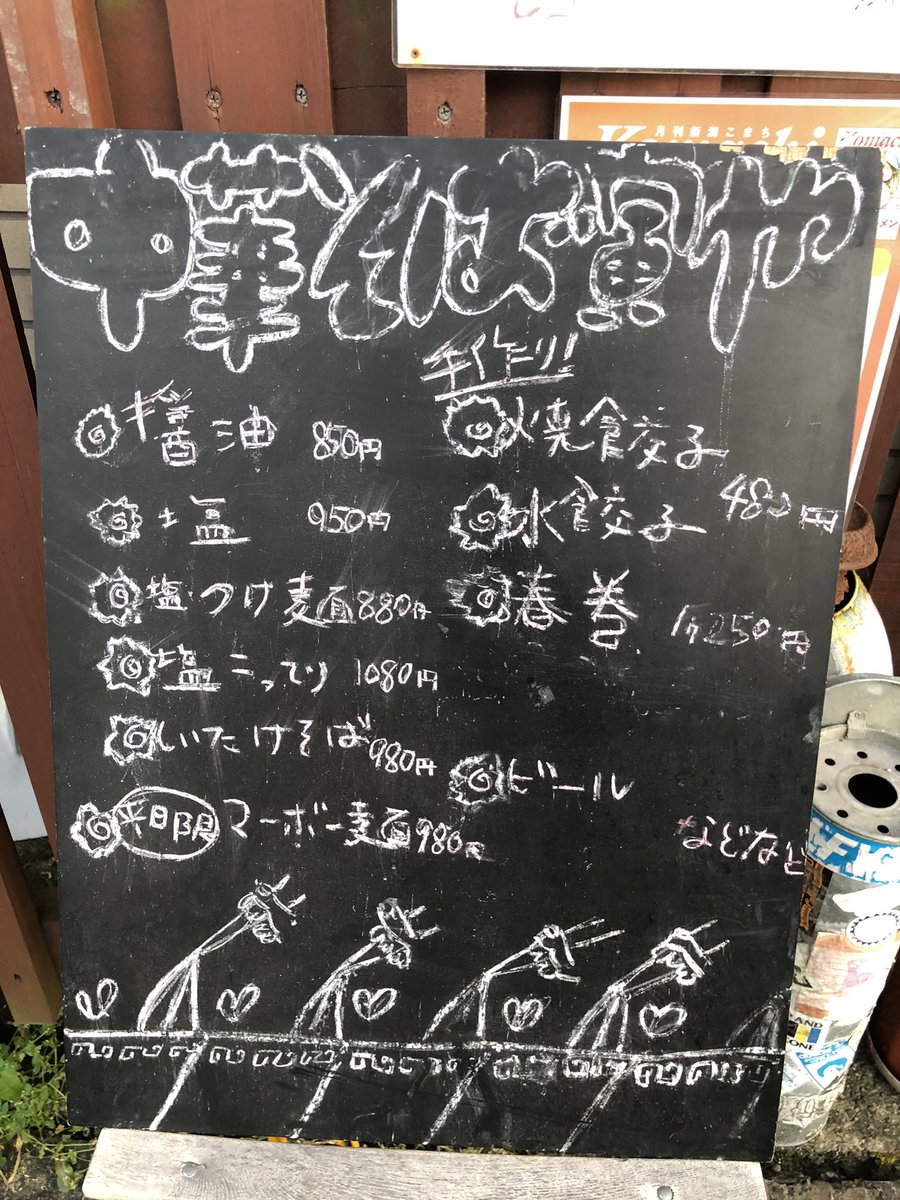 月刊新潟こまち
Komachi
中華そば寅や
醤油 850円
塩 950円
塩つけ麺 880円
塩こってり 1080円
しいたけそば 980円
平日限 マーボー麺 980円
手作り!!
焼餃子
水餃子 480円
春巻 1ケ250円
ビール
などなど